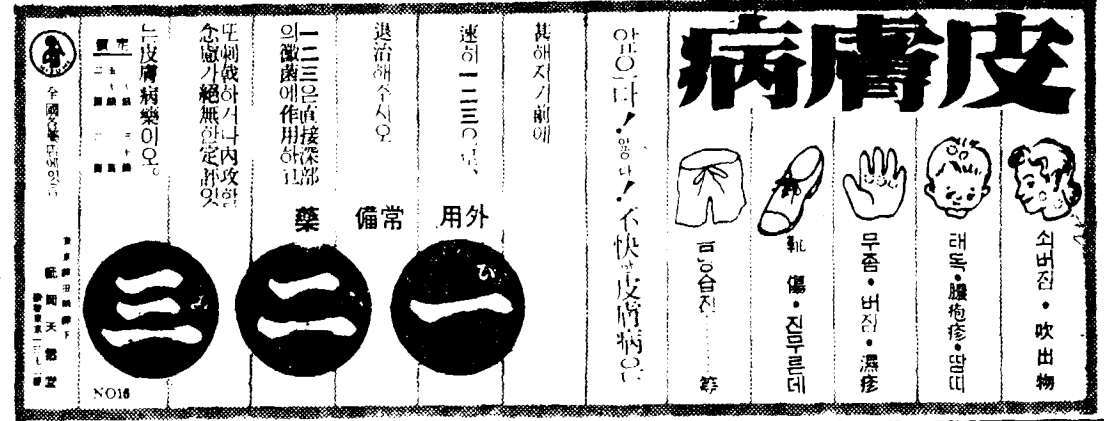 皮膚病
쇠버짐·吹出物
태독·膿疱疹·땀띠
무좀·버짐·濕疹
靴傷·진무른데
음낭습진……等
앓으니다!앓다!不快한皮膚病으로
甚해지기前에
速히一二三으로、
退治해주시오
一二三은直接深部
의黴菌에作用하고
또刺戟하거나內攻할
念慮가絕無한定評있
는皮膚病藥이오。
外用
常備
藥
ひ
一
二
み
三
定價
全國各藥店에있음
NO16